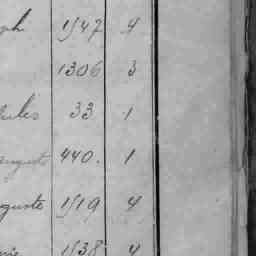 ph 1547 4
1306 3
Jules 33 1
auguste 440. 1
guste 1519 4
1538 4